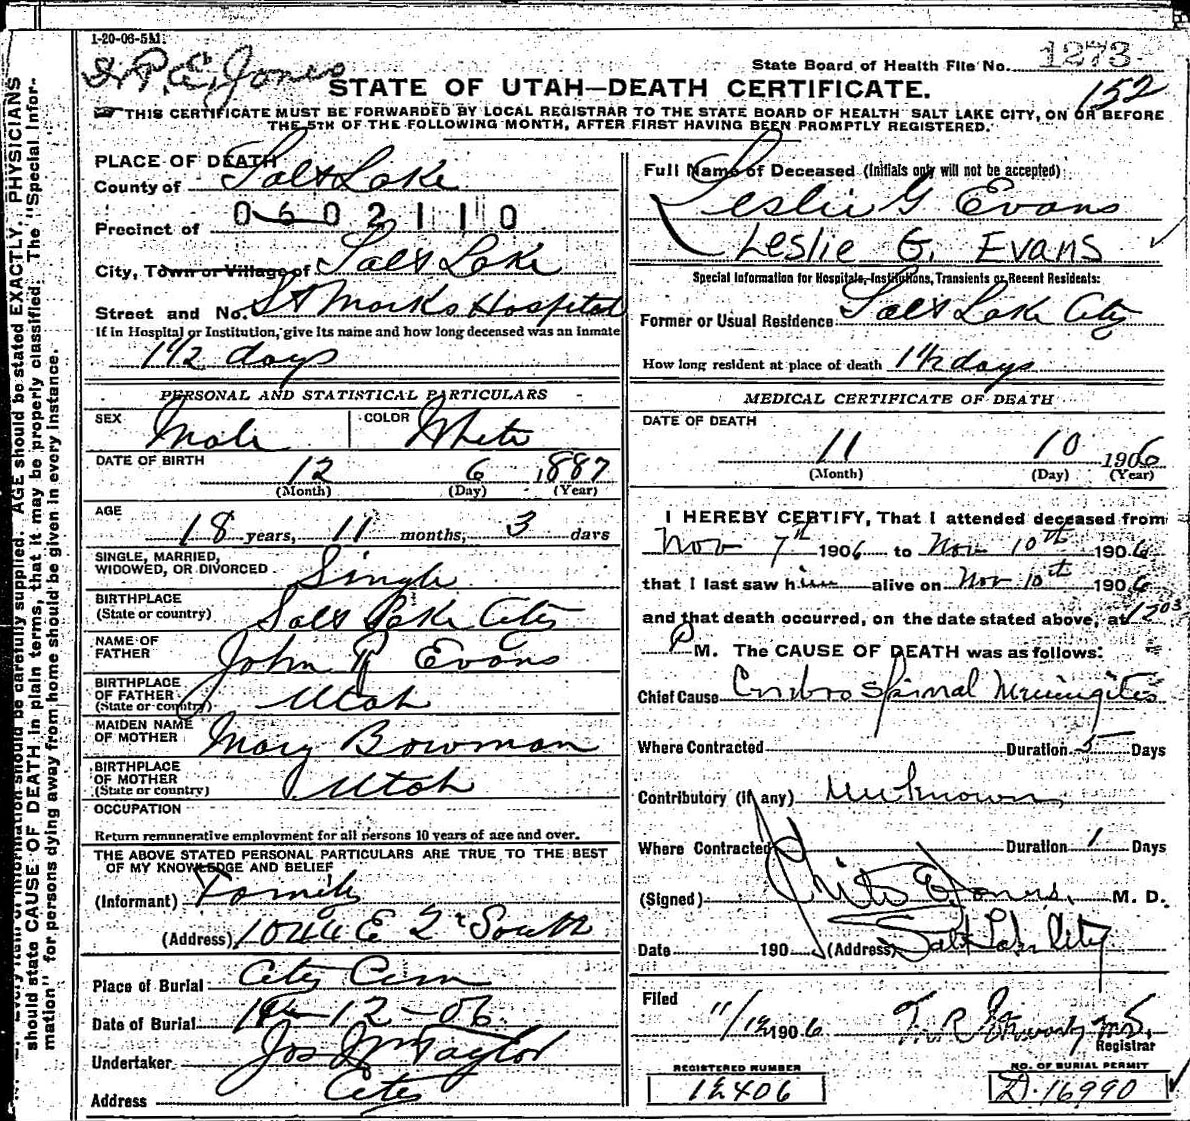 1-20-06-5M.
P. E. Jones
State Board of Health File No. 1273
STATE OF UTAH—DEATH CERTIFICATE.
152
THIS CERTIFICATE MUST BE FORWARDED BY LOCAL REGISTRAR TO THE STATE BOARD OF HEALTH SALT LAKE CITY, ON OR BEFORE
THE 5TH OF THE FOLLOWING MONTH, AFTER FIRST HAVING BEEN PROMPTLY REGISTERED.
PLACE OF DEATH
County of Salt Lake
0602110
Precinct of
City, Town or Village of Salt Lake
Street and No. St Marks Hospital
If in Hospital or Institution, give its name and how long deceased was an inmate
1 1/2 days
PERSONAL AND STATISTICAL PARTICULARS
SEX Male COLOR White
DATE OF BIRTH 12 6 1887
(Month) (Day) (Year)
AGE 18 years, 11 months, 3 days
SINGLE, MARRIED,
WIDOWED, OR DIVORCED Single
BIRTHPLACE
(State or country) Salt Lake City
NAME OF
FATHER John R Evans
BIRTHPLACE
OF FATHER
(State or country) Utah
MAIDEN NAME
OF MOTHER Mary Bowman
BIRTHPLACE
OF MOTHER
(State or country) Utah
OCCUPATION
Return remunerative employment for all persons 10 years of age and over.
THE ABOVE STATED PERSONAL PARTICULARS ARE TRUE TO THE BEST
OF MY KNOWLEDGE AND BELIEF
(Informant) Family
(Address) E 2nd South
Place of Burial City Cem
Date of Burial 12-06
Undertaker Jos Wm Taylor
Address City
Full Name of Deceased (Initials only will not be accepted)
Leslie G Evans
Leslie G. Evans
Special Information for Hospitals, Institutions, Transients or Recent Residents:
Former or Usual Residence Salt Lake City
How long resident at place of death 1 1/2 days
MEDICAL CERTIFICATE OF DEATH
DATE OF DEATH
11 10 1906
(Month) (Day) (Year)
I HEREBY CERTIFY, That I attended deceased from
Nov 7th 1906 to Nov 10th 1906
that I last saw him alive on Nov 10th 1906
and that death occurred, on the date stated above, at 1203
P M. The CAUSE OF DEATH was as follows:
Chief Cause Cerebro Spinal Meningitis
Where Contracted Duration 5 Days
Contributory (if any) Unknown
Where Contracted Duration 1 Days
(Signed) Jones, M. D.
Date 190 (Address) Salt Lake City
Filed 11/12 1906
Registrar
REGISTERED NUMBER
12406
NO. OF BURIAL PERMIT
D. 16990
Every item of information should be carefully supplied. AGE should be stated EXACTLY. PHYSICIANS
should state CAUSE OF DEATH in plain terms, that it may be properly classified. The "Special Infor-
mation" for persons dying away from home should be given in every instance.